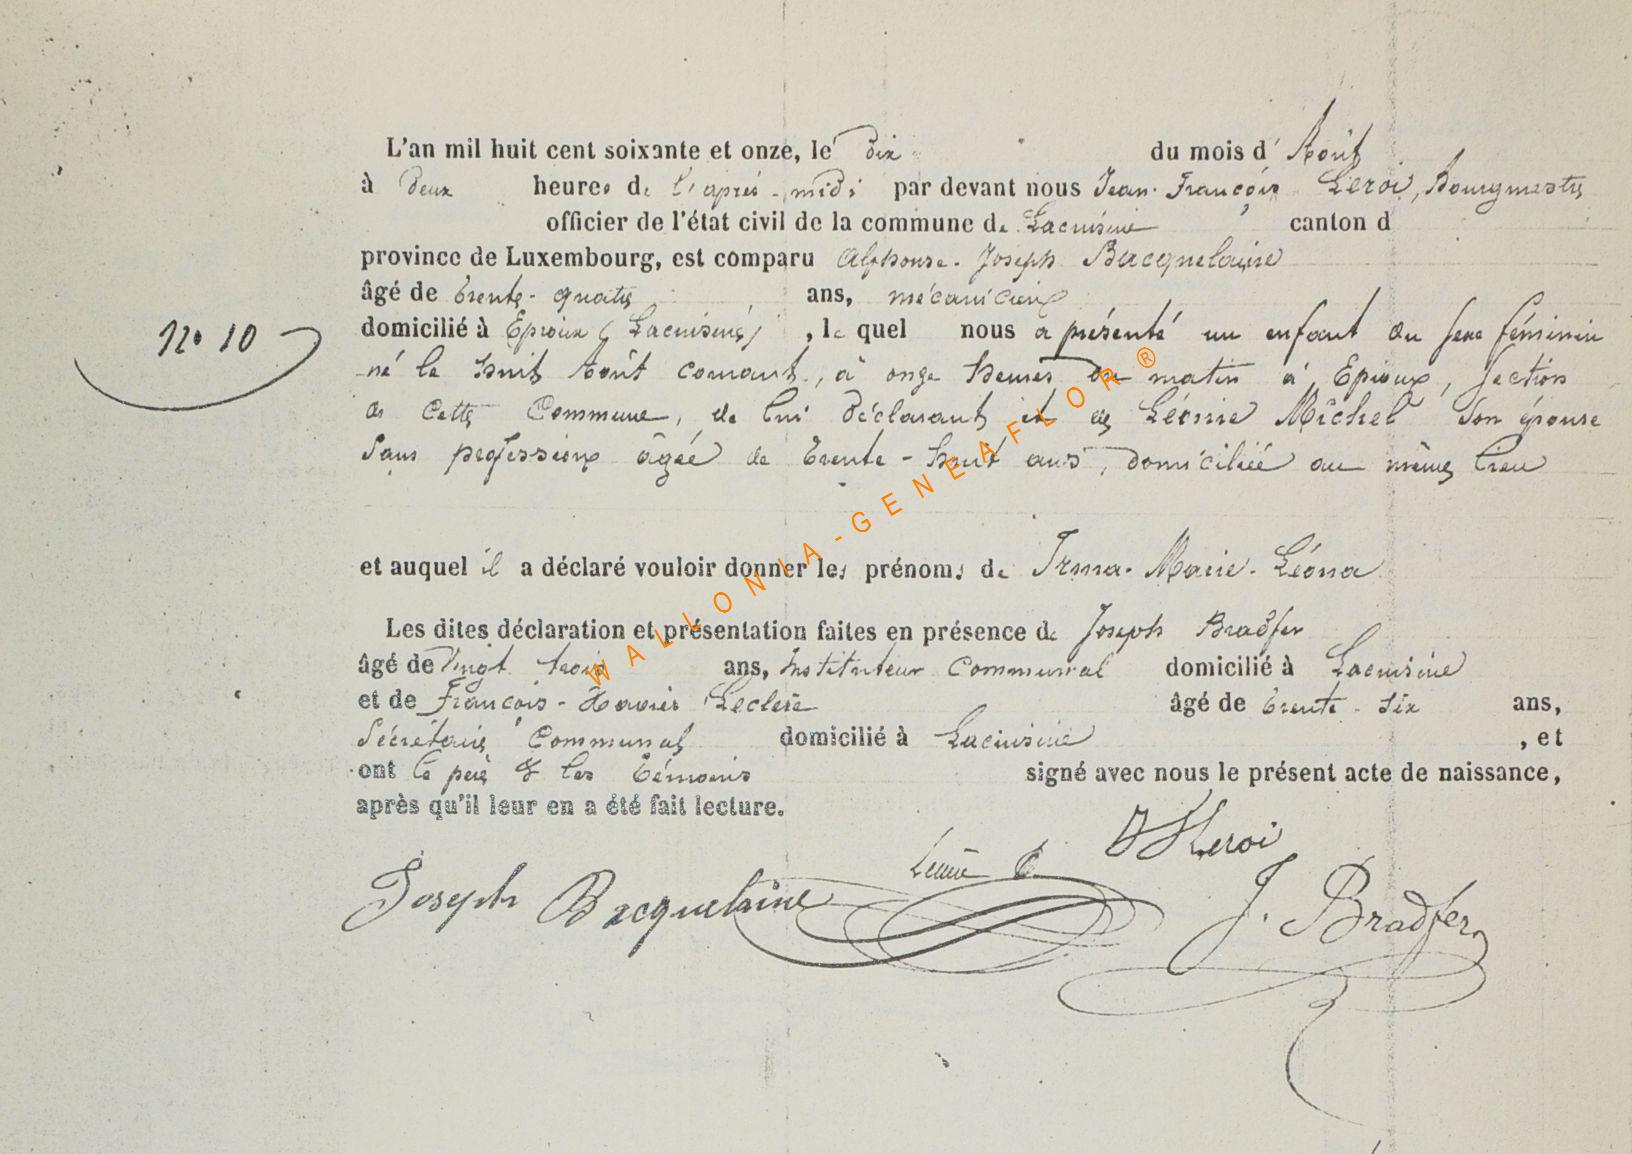 L'an mil huit cent soixante et onze, le dix du mois d' Août
à deux heures de l'après-midi par devant nous Jean-François Leroi, Bourgmestre
officier de l'état civil de la commune de Lacuisine canton d
province de Luxembourg, est comparu Alphonse-Joseph Bacquelaine
âgé de trente-quatre ans, mécanicien
domicilié à Epioux (Lacuisine) , le quel nous a présenté un enfant du sexe féminin
N° 10
né le huit Août courant, à onze heures du matin à Epioux, section
de cette Commune, de lui déclarant et de Léonie Michel son épouse
sans profession âgée de trente-huit ans, domiciliée au même lieu
et auquel il a déclaré vouloir donner les prénoms de Irma-Marie-Léona
Les dites déclaration et présentation faites en présence de Joseph Bradfer
âgé de vingt trois ans, Instituteur Communal domicilié à Lacuisine
et de François-Xavier Leclère âgé de trente-six ans,
Secrétaire Communal domicilié à Lacuisine , et
ont le père & les témoins signé avec nous le présent acte de naissance,
après qu'il leur en a été fait lecture.
Leroi
Joseph Bacquelaine J. Bradfer
WALLONIA-GENEAFLOR®